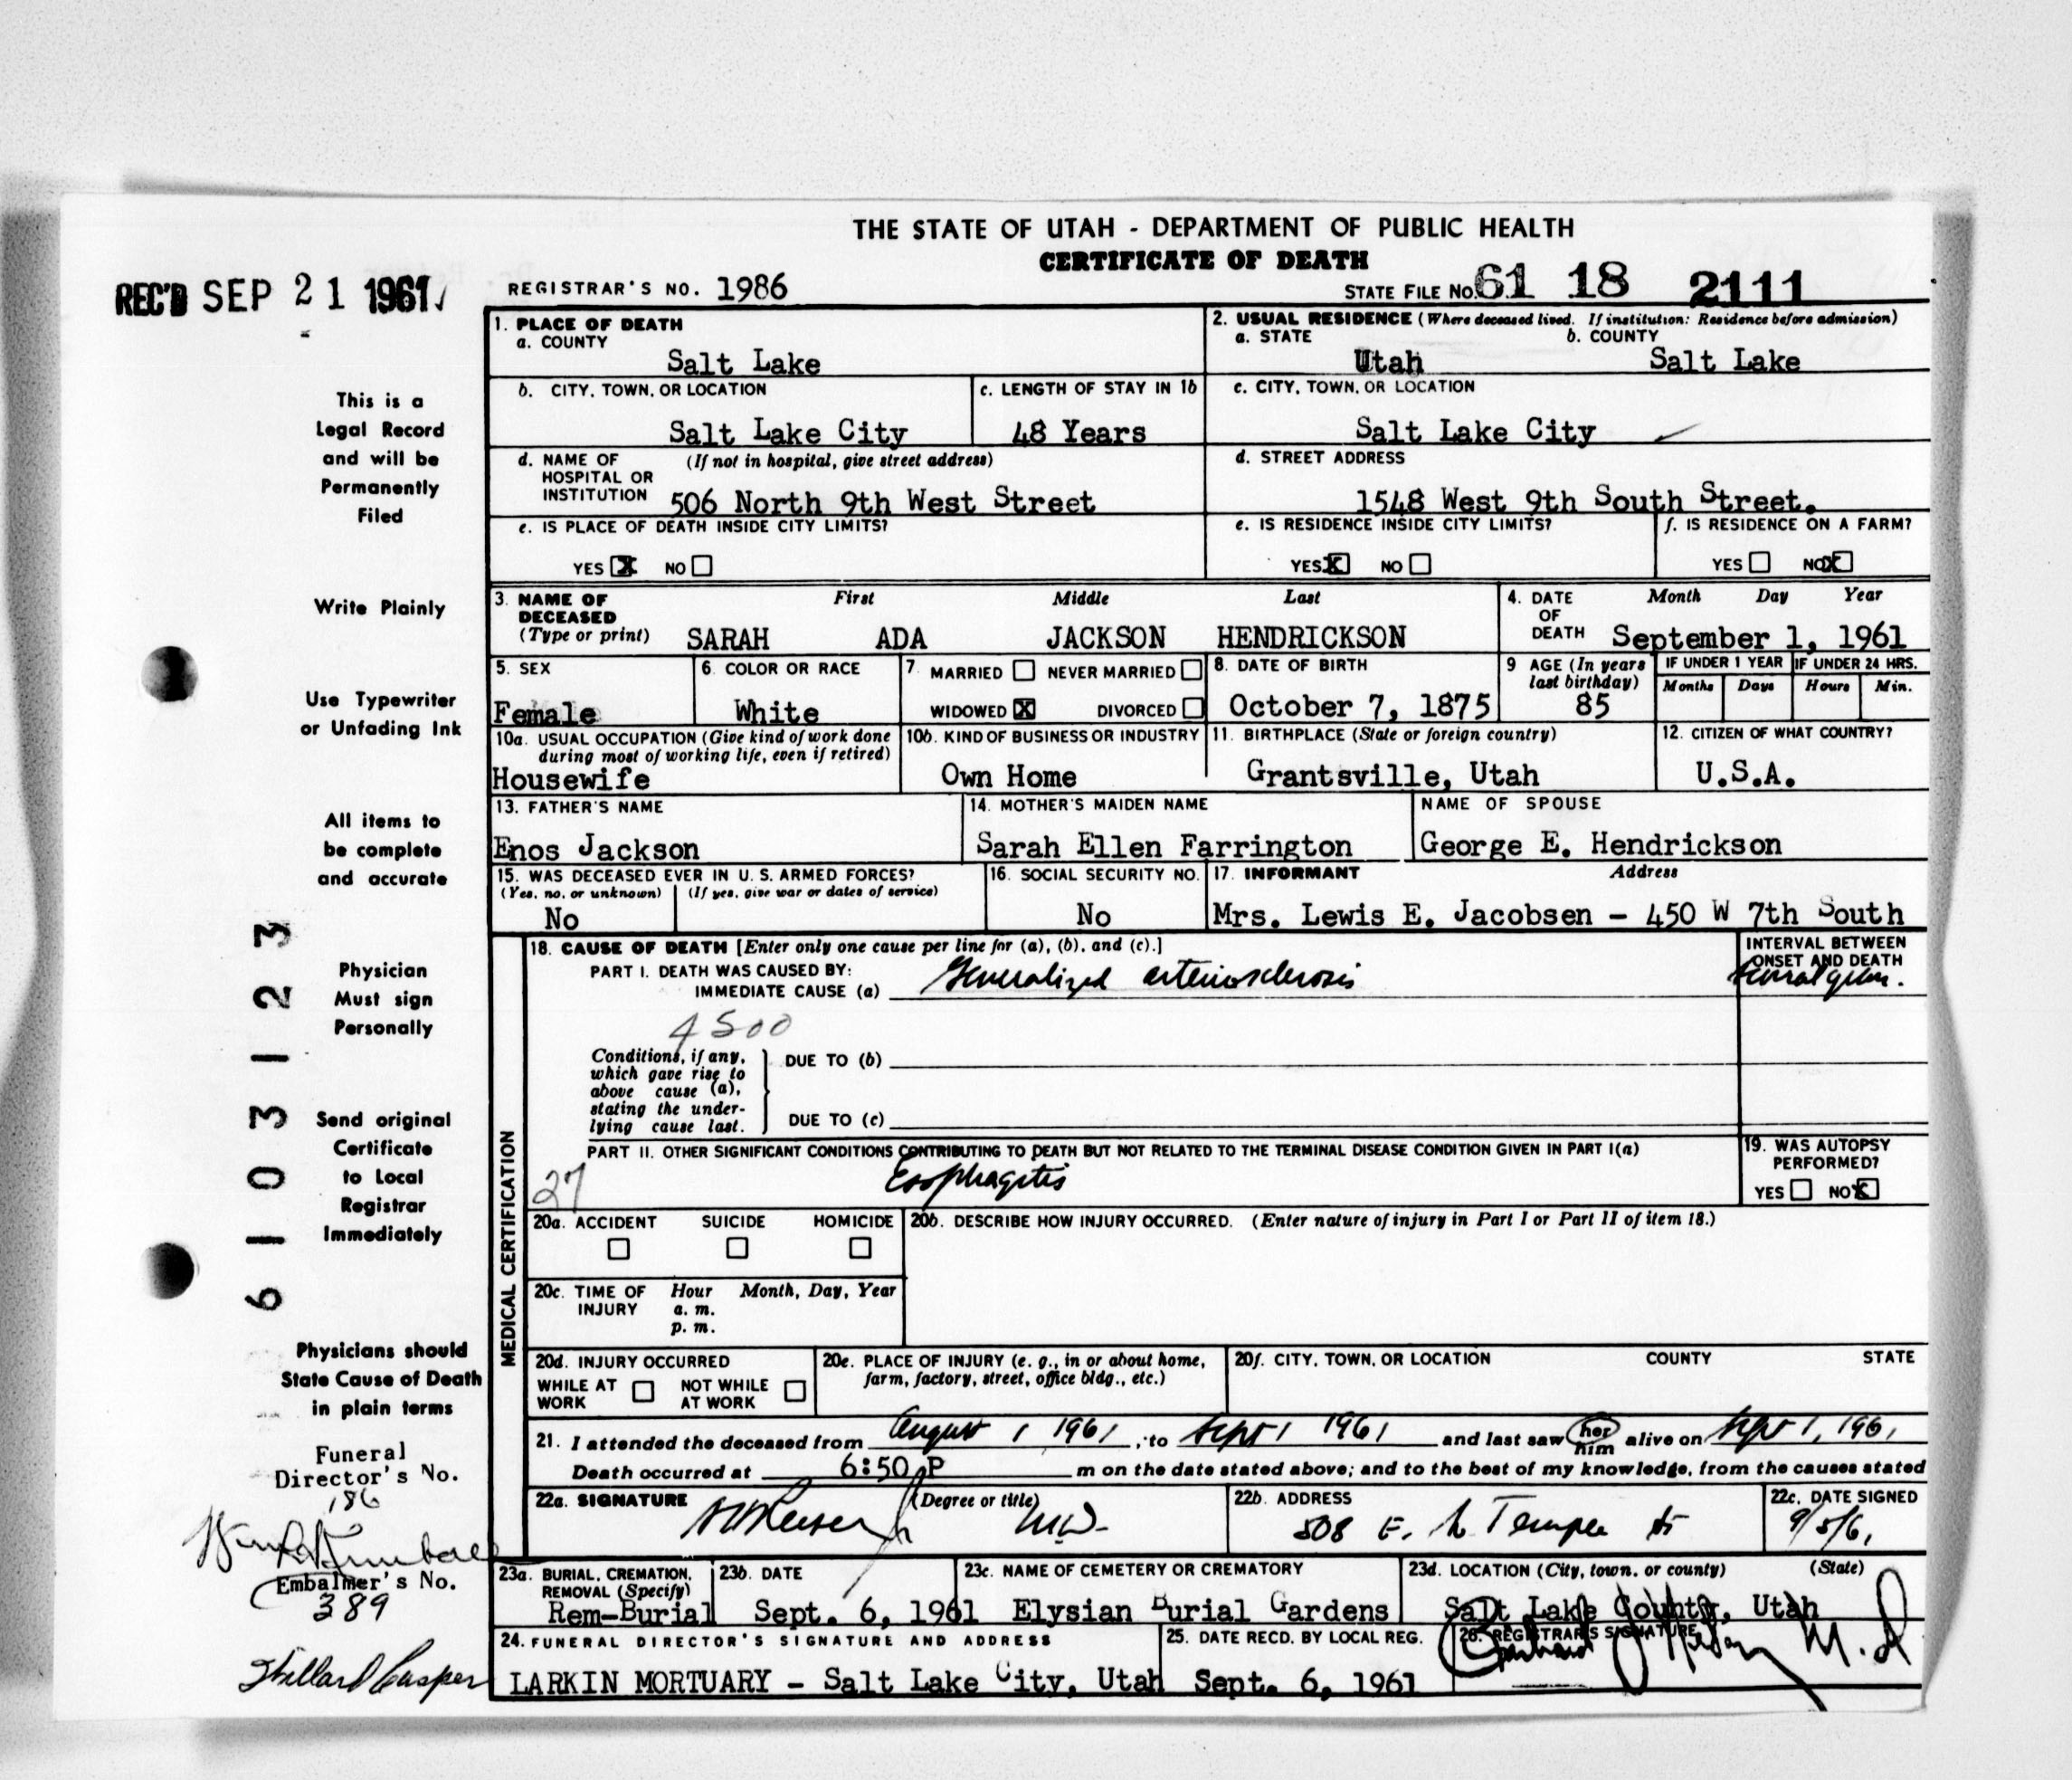 THE STATE OF UTAH - DEPARTMENT OF PUBLIC HEALTH
CERTIFICATE OF DEATH
REC'D SEP 21 1961
REGISTRAR'S NO. 1986
STATE FILE NO. 61 18 2111
This is a
Legal Record
and will be
Permanently
Filed
Write Plainly
Use Typewriter
or Unfading Ink
All items to
be complete
and accurate
Physician
Must sign
Personally
Send original
Certificate
to Local
Registrar
Immediately
Physicians should
State Cause of Death
in plain terms
Funeral
Director's No.
186
Embalmer's No.
389
6103123
1. PLACE OF DEATH
a. COUNTY
Salt Lake
2. USUAL RESIDENCE (Where deceased lived. If institution: Residence before admission)
a. STATE b. COUNTY
Utah Salt Lake
b. CITY, TOWN, OR LOCATION
Salt Lake City
c. LENGTH OF STAY IN 1b
48 Years
c. CITY, TOWN, OR LOCATION
Salt Lake City
d. NAME OF (If not in hospital, give street address)
HOSPITAL OR
INSTITUTION 506 North 9th West Street
d. STREET ADDRESS
1548 West 9th South Street.
e. IS PLACE OF DEATH INSIDE CITY LIMITS?
YES X NO
e. IS RESIDENCE INSIDE CITY LIMITS?
YES X NO
f. IS RESIDENCE ON A FARM?
YES NO X
3. NAME OF First Middle Last
DECEASED
(Type or print) SARAH ADA JACKSON HENDRICKSON
4. DATE Month Day Year
OF
DEATH September 1, 1961
5. SEX
Female
6. COLOR OR RACE
White
7. MARRIED NEVER MARRIED
WIDOWED X DIVORCED
8. DATE OF BIRTH
October 7, 1875
9 AGE (In years
last birthday)
85
IF UNDER 1 YEAR IF UNDER 24 HRS.
Months Days Hours Min.
10a. USUAL OCCUPATION (Give kind of work done
during most of working life, even if retired)
Housewife
10b. KIND OF BUSINESS OR INDUSTRY
Own Home
11. BIRTHPLACE (State or foreign country)
Grantsville, Utah
12. CITIZEN OF WHAT COUNTRY?
U.S.A.
13. FATHER'S NAME
Enos Jackson
14. MOTHER'S MAIDEN NAME
Sarah Ellen Farrington
NAME OF SPOUSE
George E. Hendrickson
15. WAS DECEASED EVER IN U. S. ARMED FORCES?
(Yes, no, or unknown) (If yes, give war or dates of service)
No
16. SOCIAL SECURITY NO.
No
17. INFORMANT Address
Mrs. Lewis E. Jacobsen - 450 W 7th South
MEDICAL CERTIFICATION
18. CAUSE OF DEATH [Enter only one cause per line for (a), (b), and (c).]
PART I. DEATH WAS CAUSED BY:
IMMEDIATE CAUSE (a) Generalized arteriosclerosis
INTERVAL BETWEEN
ONSET AND DEATH
4500
Conditions, if any,
which gave rise to
above cause (a),
stating the under-
lying cause last.
DUE TO (b)
DUE TO (c)
PART II. OTHER SIGNIFICANT CONDITIONS CONTRIBUTING TO DEATH BUT NOT RELATED TO THE TERMINAL DISEASE CONDITION GIVEN IN PART I(a)
27 Esophagitis
19. WAS AUTOPSY
PERFORMED?
YES NO X
20a. ACCIDENT SUICIDE HOMICIDE
20b. DESCRIBE HOW INJURY OCCURRED. (Enter nature of injury in Part I or Part II of item 18.)
20c. TIME OF Hour Month, Day, Year
INJURY a. m.
p. m.
20d. INJURY OCCURRED
WHILE AT NOT WHILE
WORK AT WORK
20e. PLACE OF INJURY (e. g., in or about home,
farm, factory, street, office bldg., etc.)
20f. CITY, TOWN, OR LOCATION COUNTY STATE
21. I attended the deceased from August 1 1961, to Sept 1 1961 and last saw her him alive on Sept 1, 1961
Death occurred at 6:50 P m on the date stated above; and to the best of my knowledge, from the causes stated
22a. SIGNATURE (Degree or title)
M.D.
22b. ADDRESS
508 E. So Temple St
22c. DATE SIGNED
9/5/61
23a. BURIAL, CREMATION,
REMOVAL (Specify)
Rem-Burial
23b. DATE
Sept. 6, 1961
23c. NAME OF CEMETERY OR CREMATORY
Elysian Burial Gardens
23d. LOCATION (City, town, or county) (State)
Salt Lake County, Utah
24. FUNERAL DIRECTOR'S SIGNATURE AND ADDRESS
LARKIN MORTUARY - Salt Lake City, Utah
25. DATE RECD. BY LOCAL REG.
Sept. 6, 1961
26. REGISTRAR'S SIGNATURE
M.D